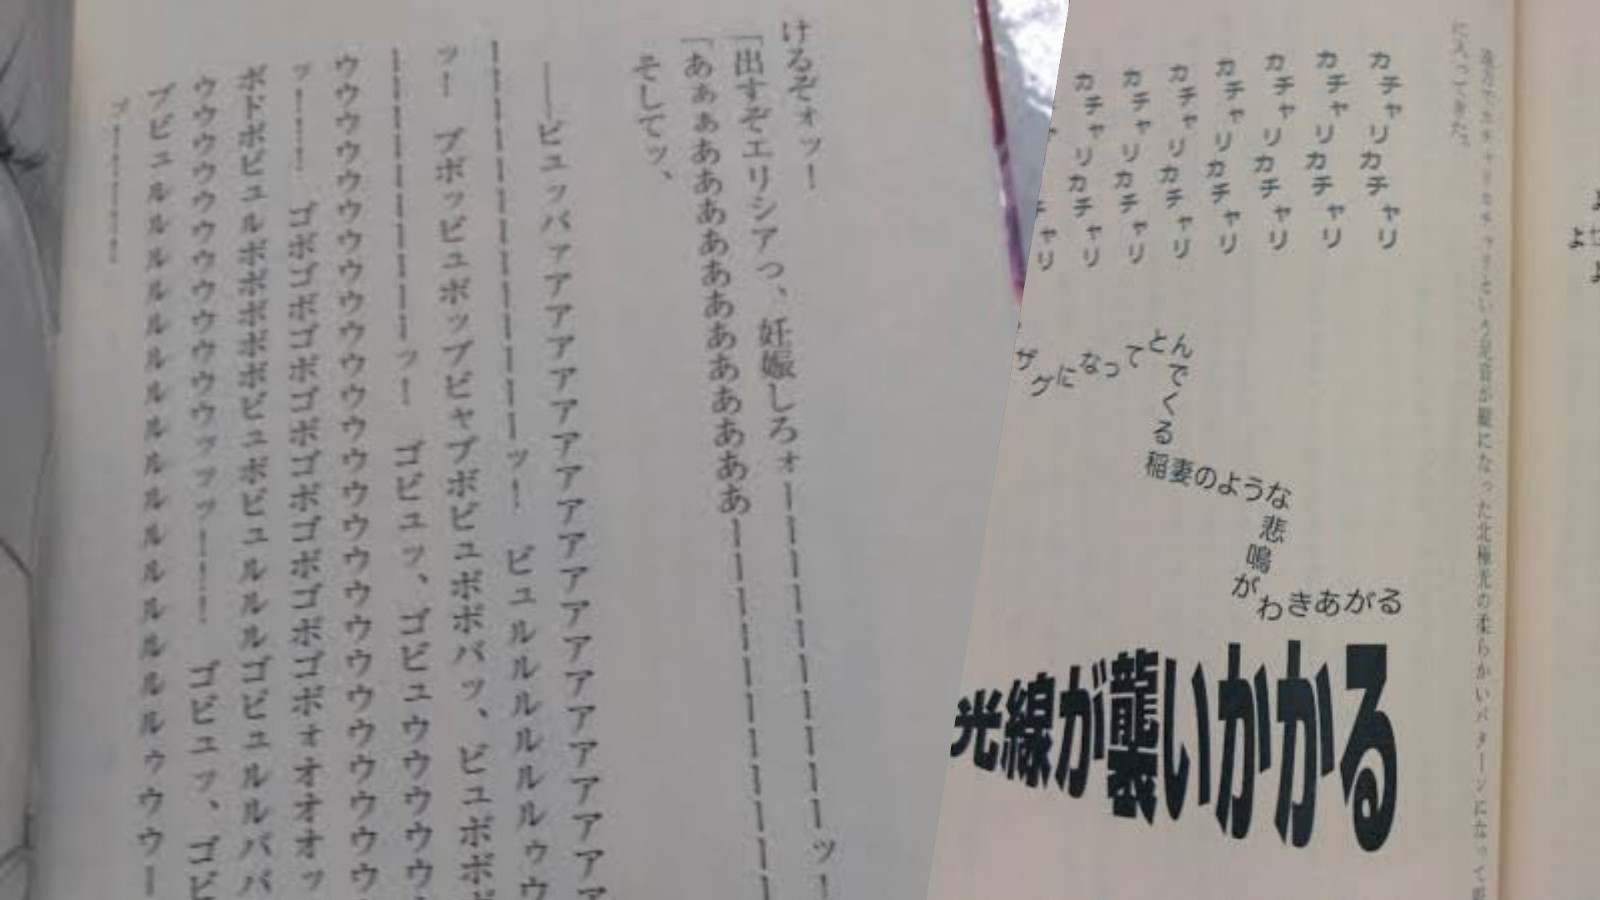 よ
せ
よ
遠方でカチャリカチャリという足音が縦になった北極光の柔らかいパターンになって
に入ってきた。
カチャリカチャリ
カチャリカチャリ
カチャリカチャリ
カチャリカチャリ
カチャリカチャリ
カチャリカチャリ
カチャリカチャリ
チャリ
ザグになってとんでくる稲妻のような悲鳴がわきあがる
光線が襲いかかる
けるぞォッ！
「出すぞエリシアっ、妊娠しろォーーーーーーーーーーーッ！
「あぁぁああああああああああああーーーーーーーーーーー
そしてッ、
――ビュッバァアアアアアアアアアアアアアアアアアアア
ーーーーーーーーーーーーッ！　ビュルルルルルルゥウ
ッ！　ブボッビュボップビャブボビュボボバッ、ビュボボボ
ーーーーーーーーーーッ！　ゴビュッ、ゴビュウウウウウ
ウウウウウウウウウウウウウウウウウウウウウウウウウウ
ッ！！！　ゴボゴボゴボゴボゴボゴボゴボゴボォオオオッ
ボドボビュルボボボボボビュボビュルルルゴビュルルバババ
ウウウウウウウウウウウウッッッ！！！！　ゴビュッ、ゴビ
ブビュルルルルルルルルルルルルルルルルルルルゥウウー
ブーーーーー